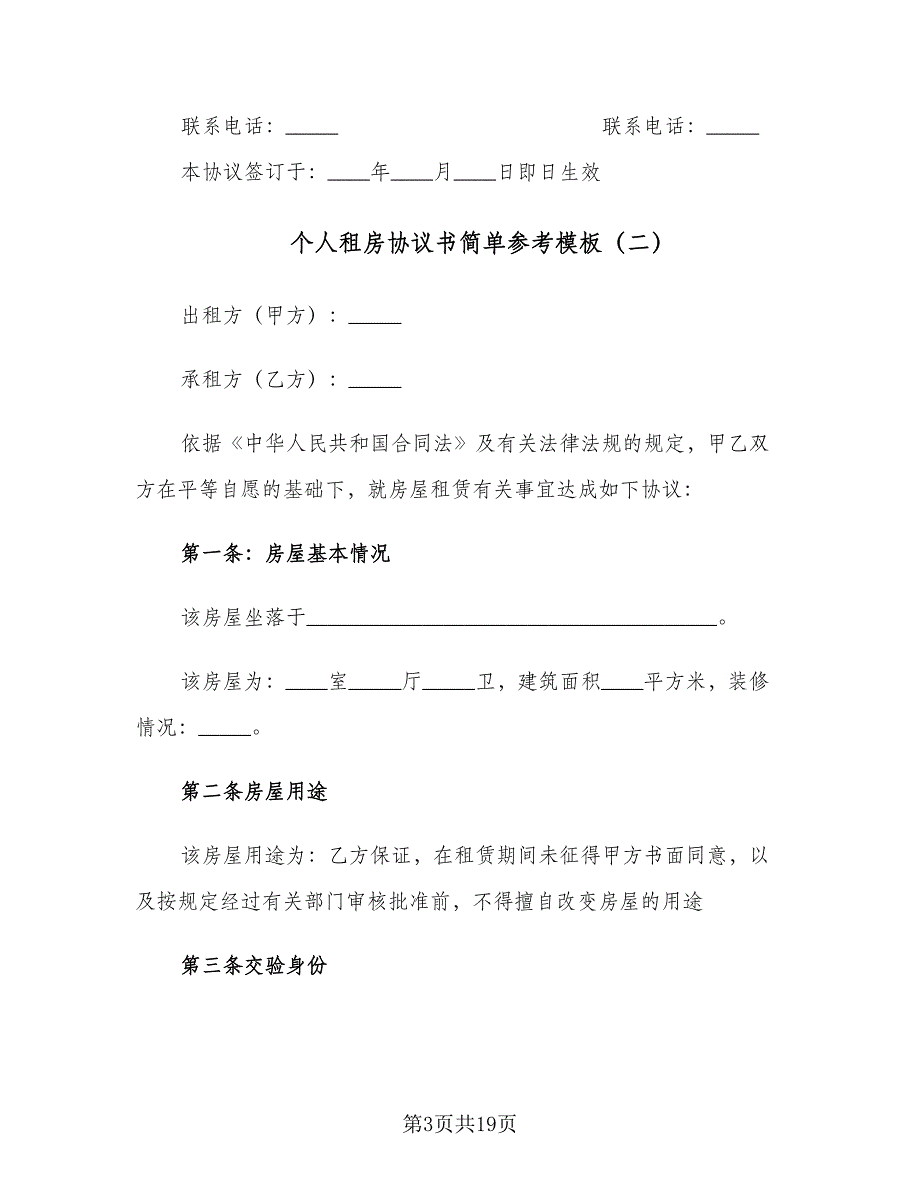 联系电话：_____ 联系电话：_____
本协议签订于：____年____月____日即日生效
个人租房协议书简单参考模板（二）
出租方（甲方）：_____
承租方（乙方）：_____
依据《中华人民共和国合同法》及有关法律法规的规定，甲乙双
方在平等自愿的基础下，就房屋租赁有关事宜达成如下协议：
第一条：房屋基本情况
该房屋坐落于_______________________________________。
该房屋为：____室_____厅_____卫，建筑面积____平方米，装修
情况：_____。
第二条房屋用途
该房屋用途为：乙方保证，在租赁期间未征得甲方书面同意，以
及按规定经过有关部门审核批准前，不得擅自改变房屋的用途
第三条交验身份
第3页共19页